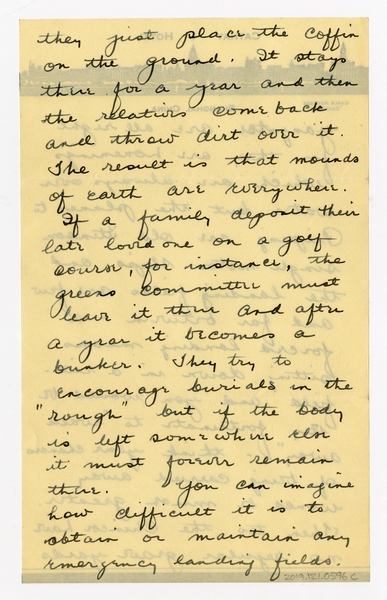 they just place the coffin
on the ground. It stays
there for a year and then
the relatives come back
and throw dirt over it.
The result is that mounds
of earth are everywhere.
If a family deposit their
late loved one on a golf
course, for instance, the
greens committee must
leave it there and after
a year it becomes a
bunker. They try to
encourage burials in the
"rough" but if the body
is left somewhere else
it must forever remain
there. You can imagine
how difficult it is to
obtain or maintain any
emergency landing fields.
2019.121.0596 c